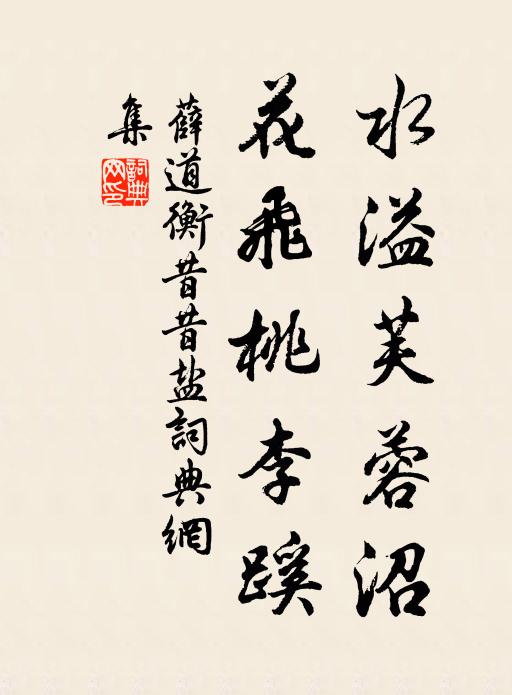 水溢芙蓉沼
花飛桃李蹊
薛道衡昔昔盐詞典網
集
詞典網印